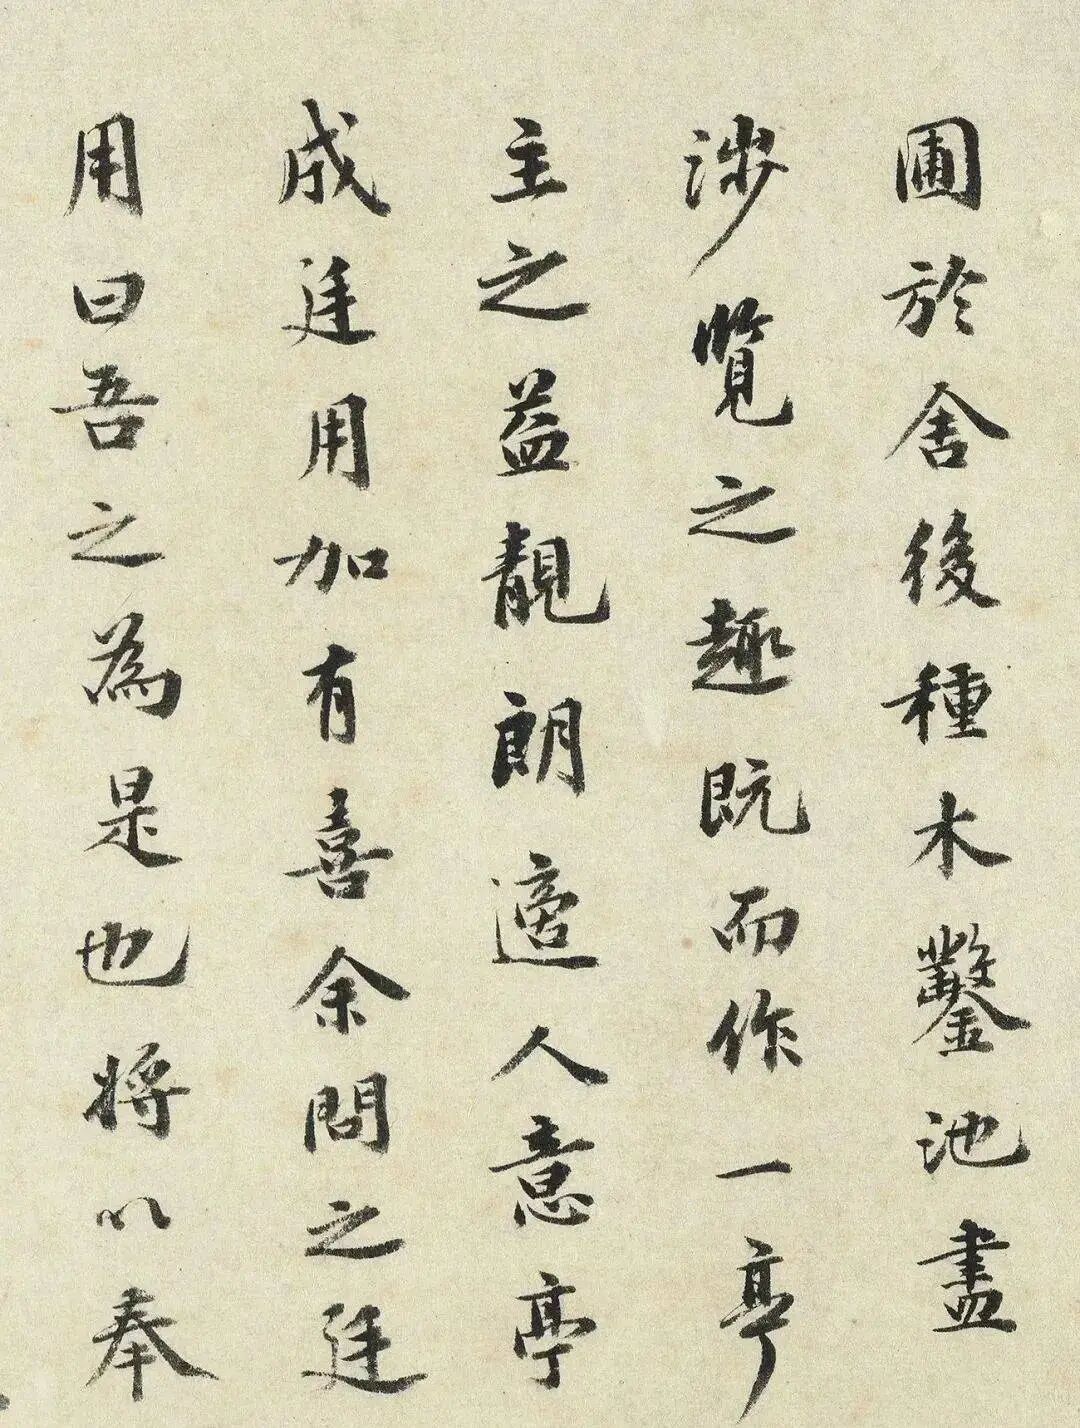 圃於舍後種木鑿池盡
涉覽之趣既而作一亭
主之益靚朗適人意亭
成廷用加有喜余問之廷
用曰吾之為是也將以奉